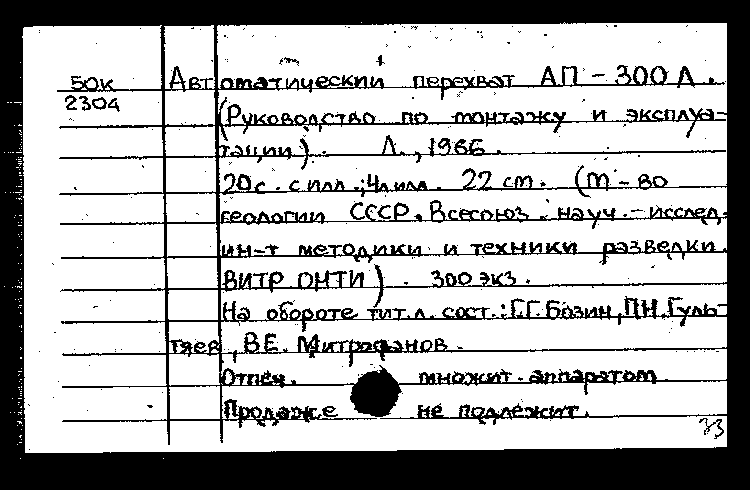 50к Автоматический перехват АП-300 Л.
2304 (Руководство по монтажу и эксплуа-
тации). Л., 1966.
20с. с илл.; 4л.илл. 22 cm. (М-во
геологии СССР. Всесоюз. науч.-исслед.
ин-т методики и техники разведки.
ВИТР ОНТИ). 300 экз.
На обороте тит.л. сост.: Г.Г. Бозин, П.Н. Гуль-
тяев, В.Е. Митрофанов.
Отпеч. множит. аппаратом
Продаже не подлежит.